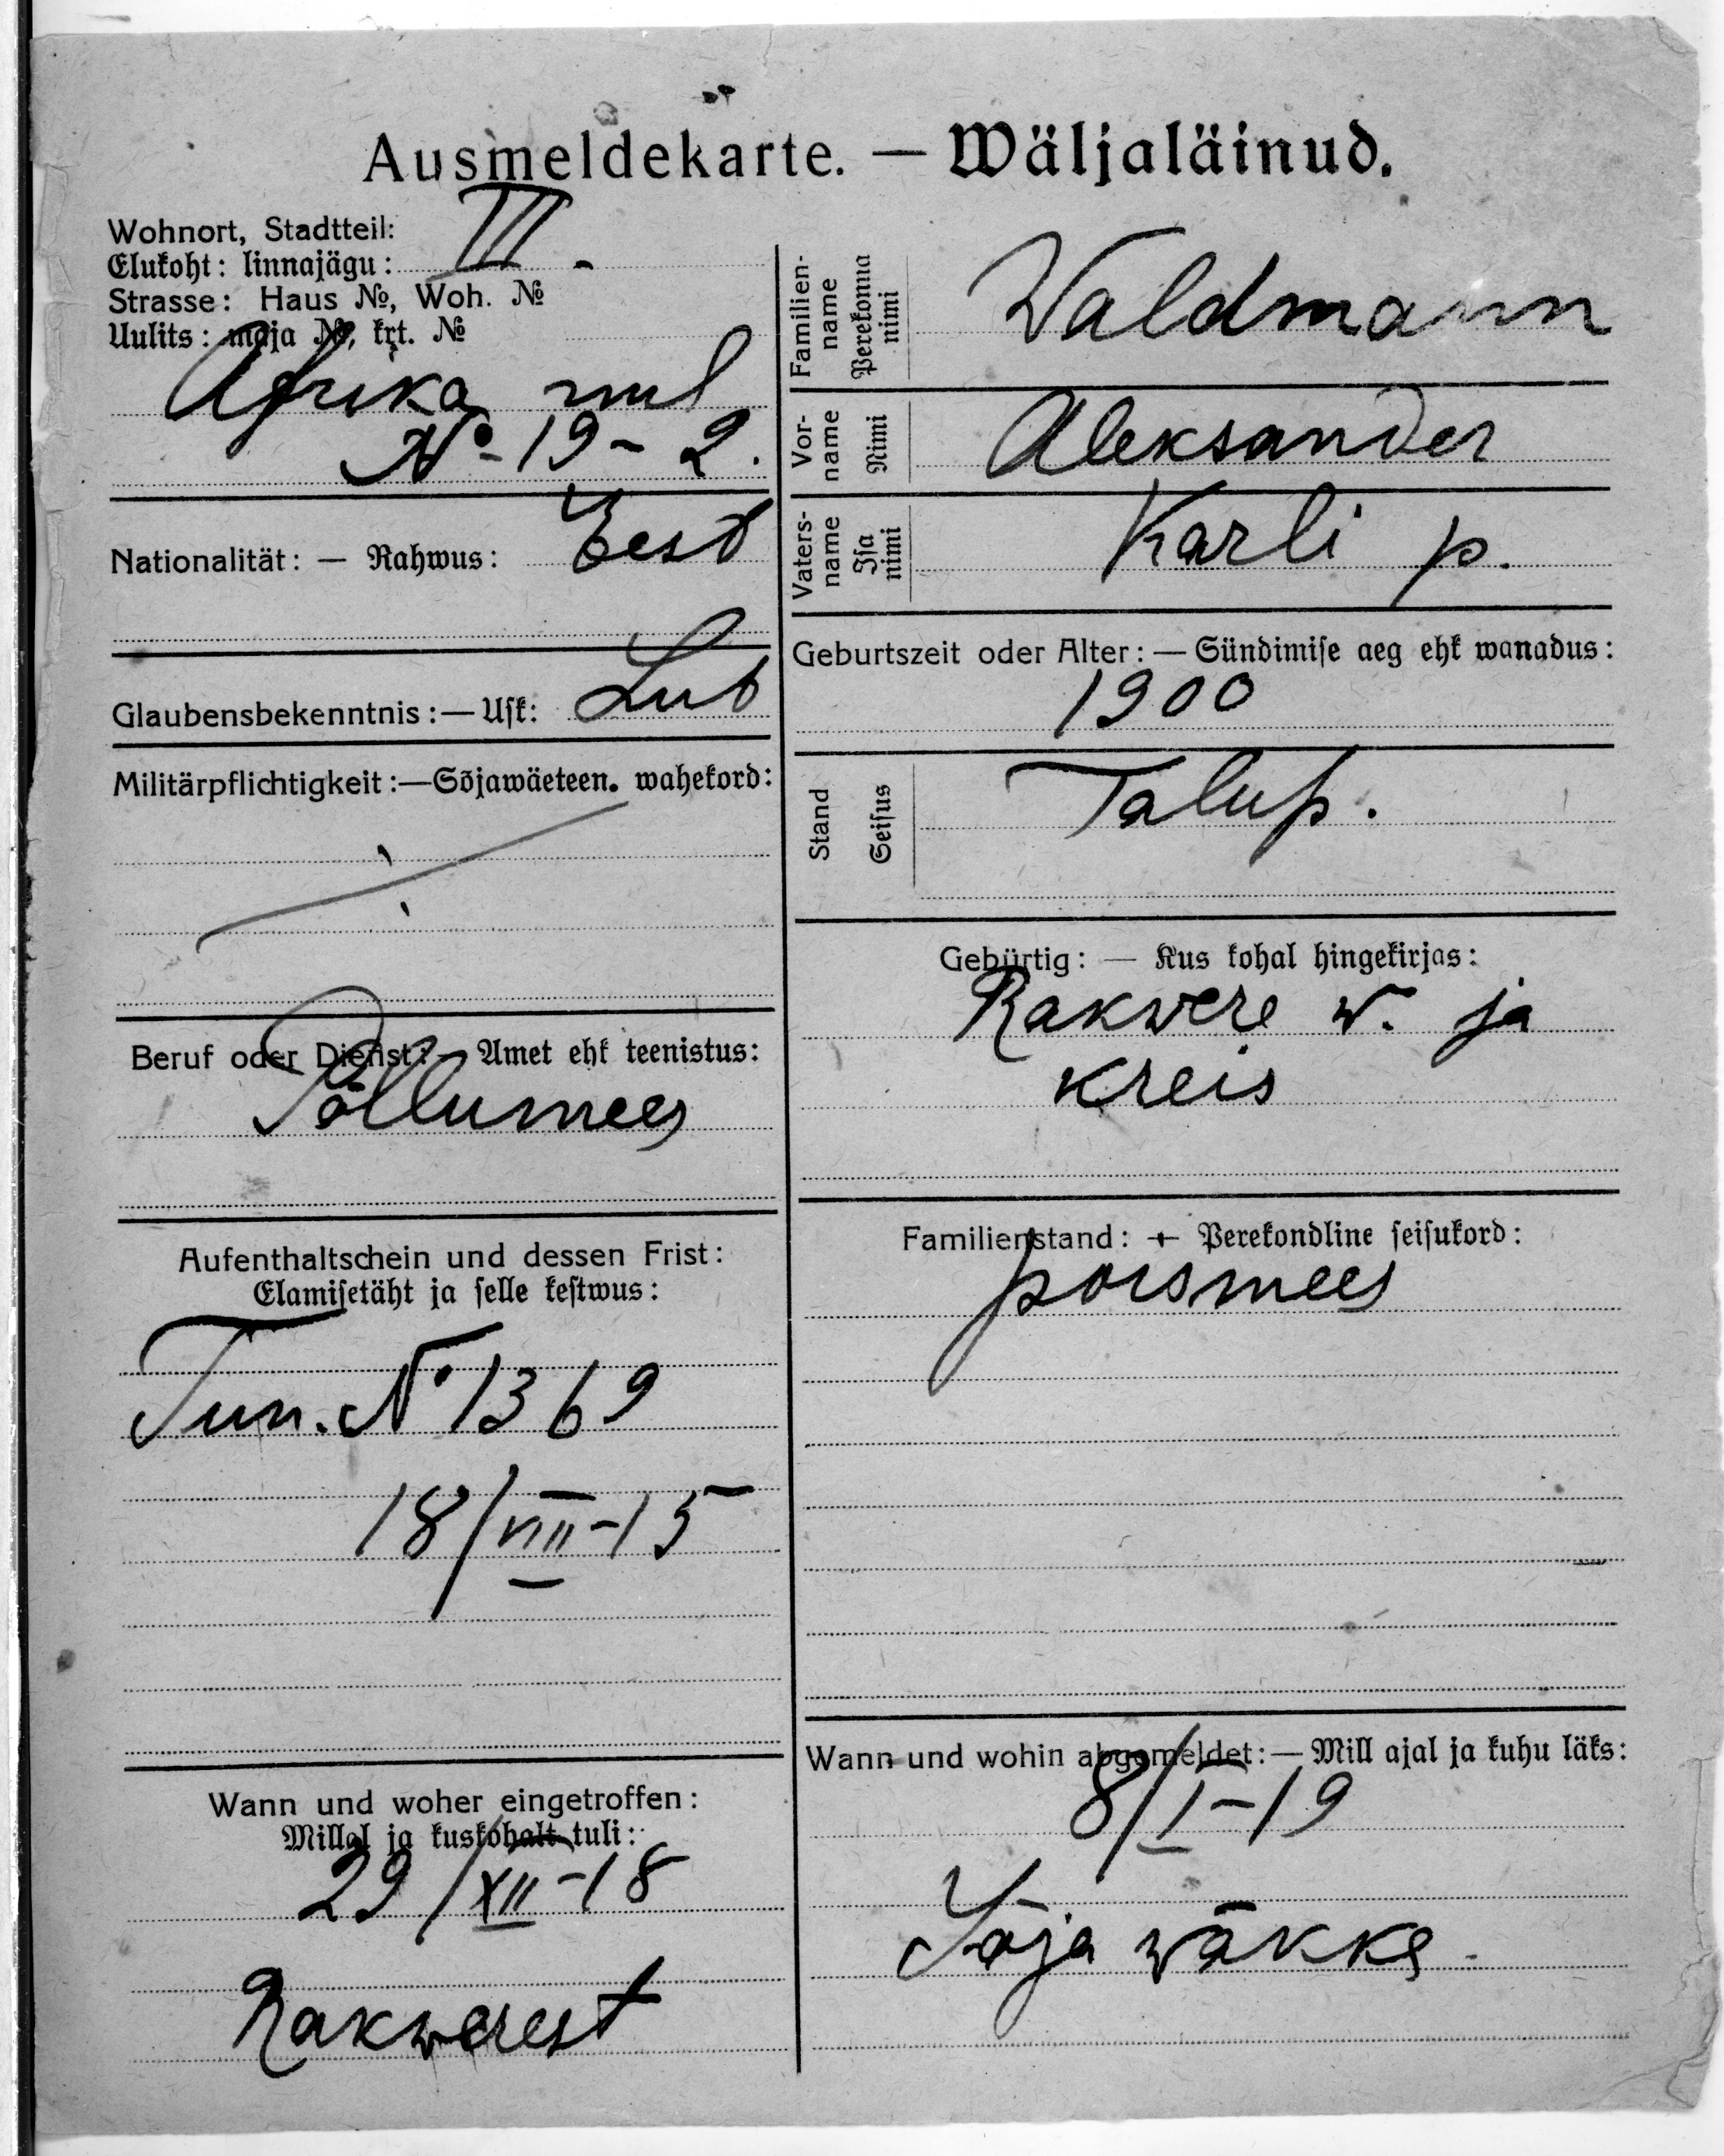 Ausmeldekarte. — Wäljaläinud.
Wohnort, Stadtteil:
Elukoht: linnajägu: III.
Strasse: Haus №, Woh. №
Uulits: maja №, krt. №
Afrika uul
№ 19 - 2.
Nationalität: — Rahwus: Eest
Glaubensbekenntnis: — Usk: Lut
Militärpflichtigkeit: — Sõjawäeteen. wahekord:
Beruf oder Dienst: — Amet ehk teenistus:
Põllumees
Aufenthaltschein und dessen Frist:
Elamisetäht ja selle kestwus:
Tun. № 1369
18/VIII-15
Wann und woher eingetroffen:
Millal ja kuskohalt tuli:
29/XII-18
Rakwerest
Familien-
name
Perekonna
nimi
Waldmann
Vor-
name
Nimi
Aleksander
Vaters-
name
Isa
nimi
Karli p.
Geburtszeit oder Alter: — Sündimise aeg ehk wanadus:
1900
Stand
Seisus
Talup.
Gebürtig: — Kus kohal hingekirjas:
Rakwere w. ja
kreis
Familienstand: — Perekondline seisukord:
poismees
Wann und wohin abgemeldet: — Mill ajal ja kuhu läks:
8/I-19
Sõja wäkke.